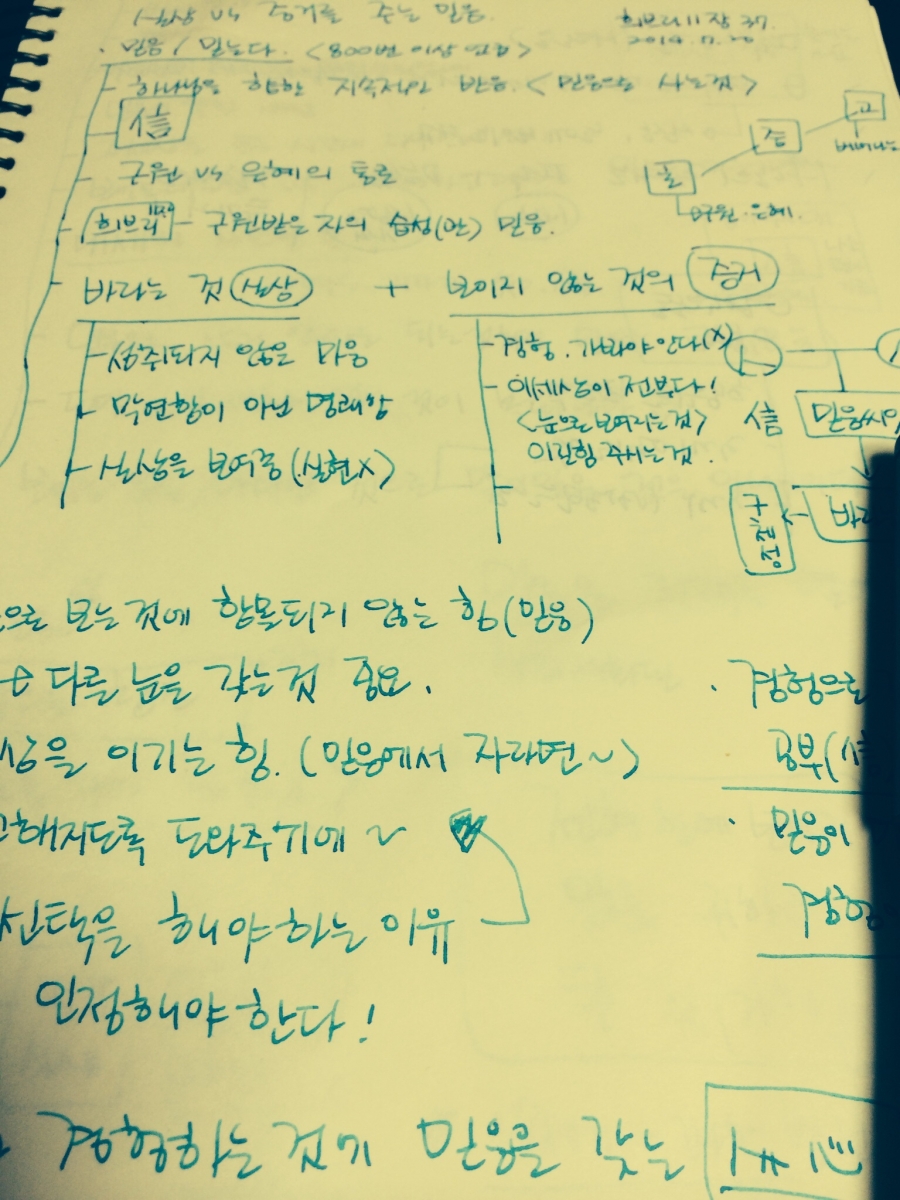 실상 vs 증거를 주는 믿음.
히브리 11장
· 믿음 / 믿는다. <800번 이상 언급>
- 하나님을 향한 지속적인 반응. <믿음으로 사는것>
信
- 구원 vs 은혜의 통로
구원·은혜.
- 히브리 - 구원받은 자의 습성(안) 믿음.
- 바라는 것 실상 + 보이지 않는 것의 증거
- 성취되지 않은 마음
- 막연함이 아닌 명쾌함
- 실상을 보여줌 (실현X)
- 경험. 가봐야 안다(X)
- 이세상이 전부다!
<눈으로 보여지는것>
이길힘 주시는것.
信
구체성
으로 보는것에 함몰되지 않는 힘(믿음)
또 다른 눈을 갖는것 중요.
상을 이기는 힘. (믿음에서 자라면~)
해지도록 도와주기에 ~
선택을 해야하는 이유
인정해야 한다!
· 경험으로
공부(
· 믿음이
경험
경험하는 것에 믿음을 갖는